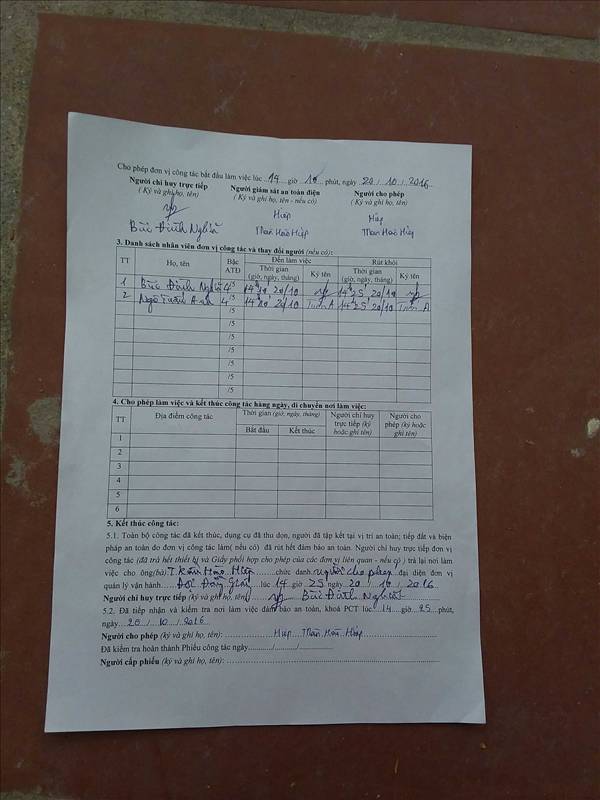 Cho phép đơn vị công tác bắt đầu làm việc lúc 14 giờ 10 phút, ngày 20 / 10 / 2016
Người chỉ huy trực tiếp Người giám sát an toàn điện Người cho phép
( Ký và ghi họ, tên) ( Ký và ghi họ, tên - nếu có) ( Ký và ghi họ, tên)
Hiệp Hiệp
Bùi Đình Nghĩa Trần Hào Hiệp Trần Hào Hiệp
3. Danh sách nhân viên đơn vị công tác và thay đổi người (nếu có):
TT Họ, tên Bậc ATĐ Đến làm việc Rút khỏi
Thời gian (giờ, ngày, tháng) Ký tên Thời gian (giờ, ngày, tháng) Ký tên
1 Bùi Đình Nghĩa 4/5 14 10 20/10 14 25 20/10
2 Ngô Tuấn Anh 4/5 14 10 20/10 Tuấn A 14 25 20/10 Tuấn A
/5
/5
/5
/5
/5
/5
/5
4. Cho phép làm việc và kết thúc công tác hàng ngày, di chuyển nơi làm việc:
TT Địa điểm công tác Thời gian (giờ, ngày, tháng) Người chỉ huy trực tiếp (ký hoặc ghi tên) Người cho phép (ký hoặc ghi tên)
Bắt đầu Kết thúc
1
2
3
4
5
6
5. Kết thúc công tác:
5.1. Toàn bộ công tác đã kết thúc, dụng cụ đã thu dọn, người đã tập kết tại vị trí an toàn; tiếp đất và biện
pháp an toàn do đơn vị công tác làm( nếu có) đã rút hết đảm bảo an toàn. Người chỉ huy trực tiếp đơn vị
công tác (đã trả hết thiết bị và Giấy phối hợp cho phép của các đơn vị liên quan - nếu có ) trả lại nơi làm
việc cho ông(bà) Trần Hào Hiệp chức danh người cho phép đại diện đơn vị
quản lý vận hành lúc 14 giờ 25 ngày 20 / 10 / 2016
Người chỉ huy trực tiếp (ký và ghi họ, tên) Bùi Đình Nghĩa
5.2. Đã tiếp nhận và kiểm tra nơi làm việc đảm bảo an toàn, khoá PCT lúc 14 giờ 25 phút,
ngày 20 / 10 / 2016
Người cho phép (ký và ghi họ, tên): Hiệp Trần Hào Hiệp
Đã kiểm tra hoàn thành Phiếu công tác ngày............/............/............
Người cấp phiếu (ký và ghi họ, tên):